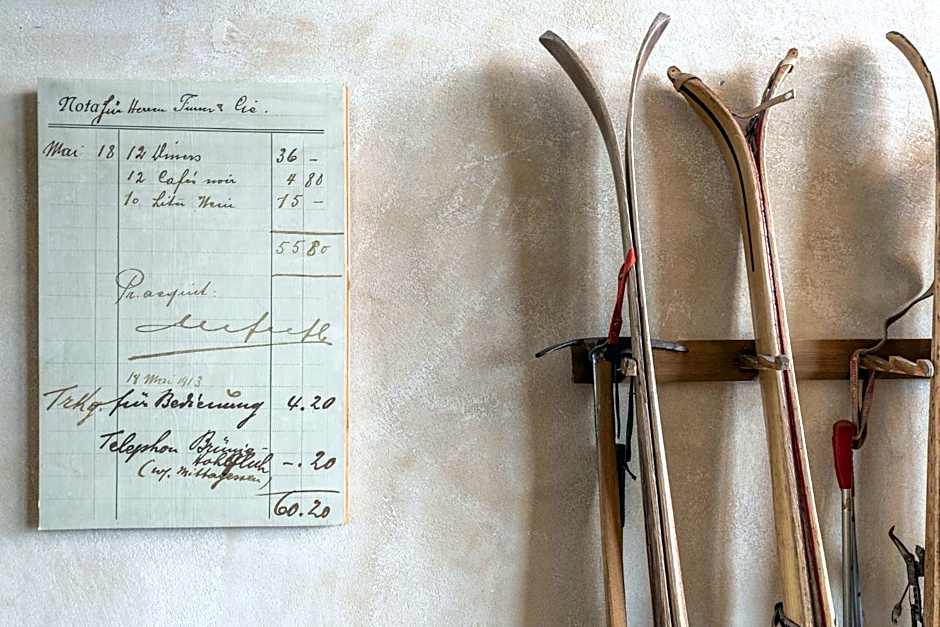 Nota für Herrn Turner & Cie.
Mai 18 12 Diners 36 –
12 Cafés noir 4 80
10 Liter Wein 15 –
55 80
Pr. acquit:
18 Mai 1913
Trkg. für Bedienung 4.20
Telephon Brünig-
Hohfluh –.20
(wg. Mittagessen)
60.20